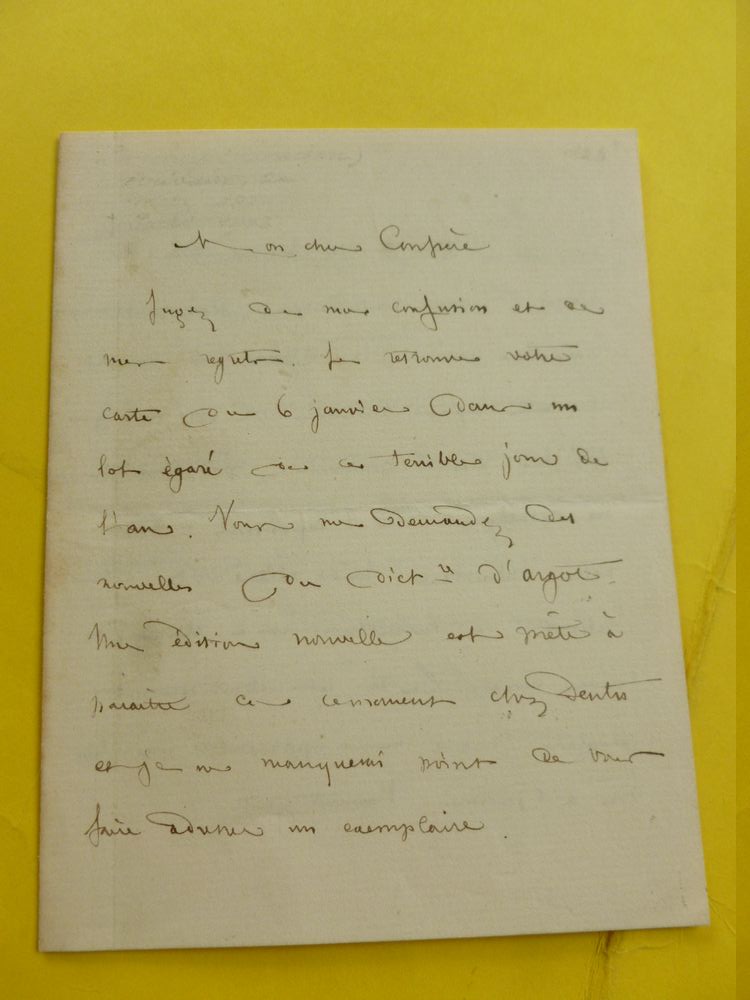 Mon cher Confrère
Jugez de ma confusion et de
mes regrets. Je retrouve votre
carte du 6 janvier dans un
lot égaré de ce terrible jour de
l'an. Vous me demandez des
nouvelles du dict re d'argot.
Une édition nouvelle est prête à
paraitre en ce moment chez Dentu
et je ne manquerai point de vous
faire adresser un exemplaire.